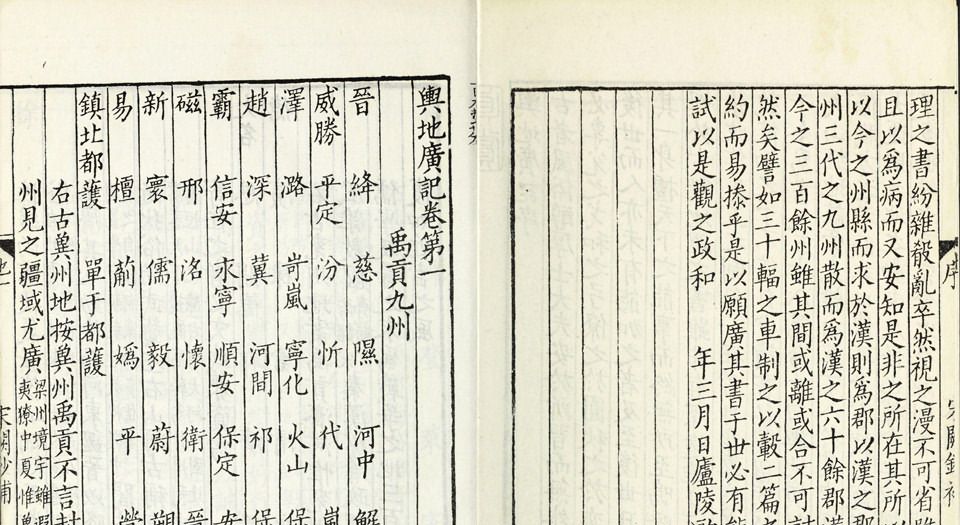 理之書紛雜殽亂卒然視之漫不可省
且以爲病而又安知是非之所在其所
以今之州縣而求於漢則爲郡以漢之郡
州三代之九州散而爲漢之六十餘郡漢
今之三百餘州雖其間或離或合不可
然矣譬如三十輻之車制之以轂二篇之
約而易操乎是以願廣其書于世必有能
試以是觀之政和 年三月日廬陵
序
輿地廣記卷第一
禹貢九州
晉 絳 慈 隰 河中 解
威勝 平定 汾 忻 代 嵐
澤 潞 岢嵐 寧化 火山 保
趙 深 冀 河間 祁 保
霸 信安 永寧 順安 保定 安
磁 邢 洺 懷 衛
新 寰 儒 毅 蔚 朔
易 檀 薊 嬀 平 營
鎮北都護 單于都護
右古冀州地按冀州禹貢不言封
州見之疆域尤廣梁州境宇雖
夷獠中夏惟